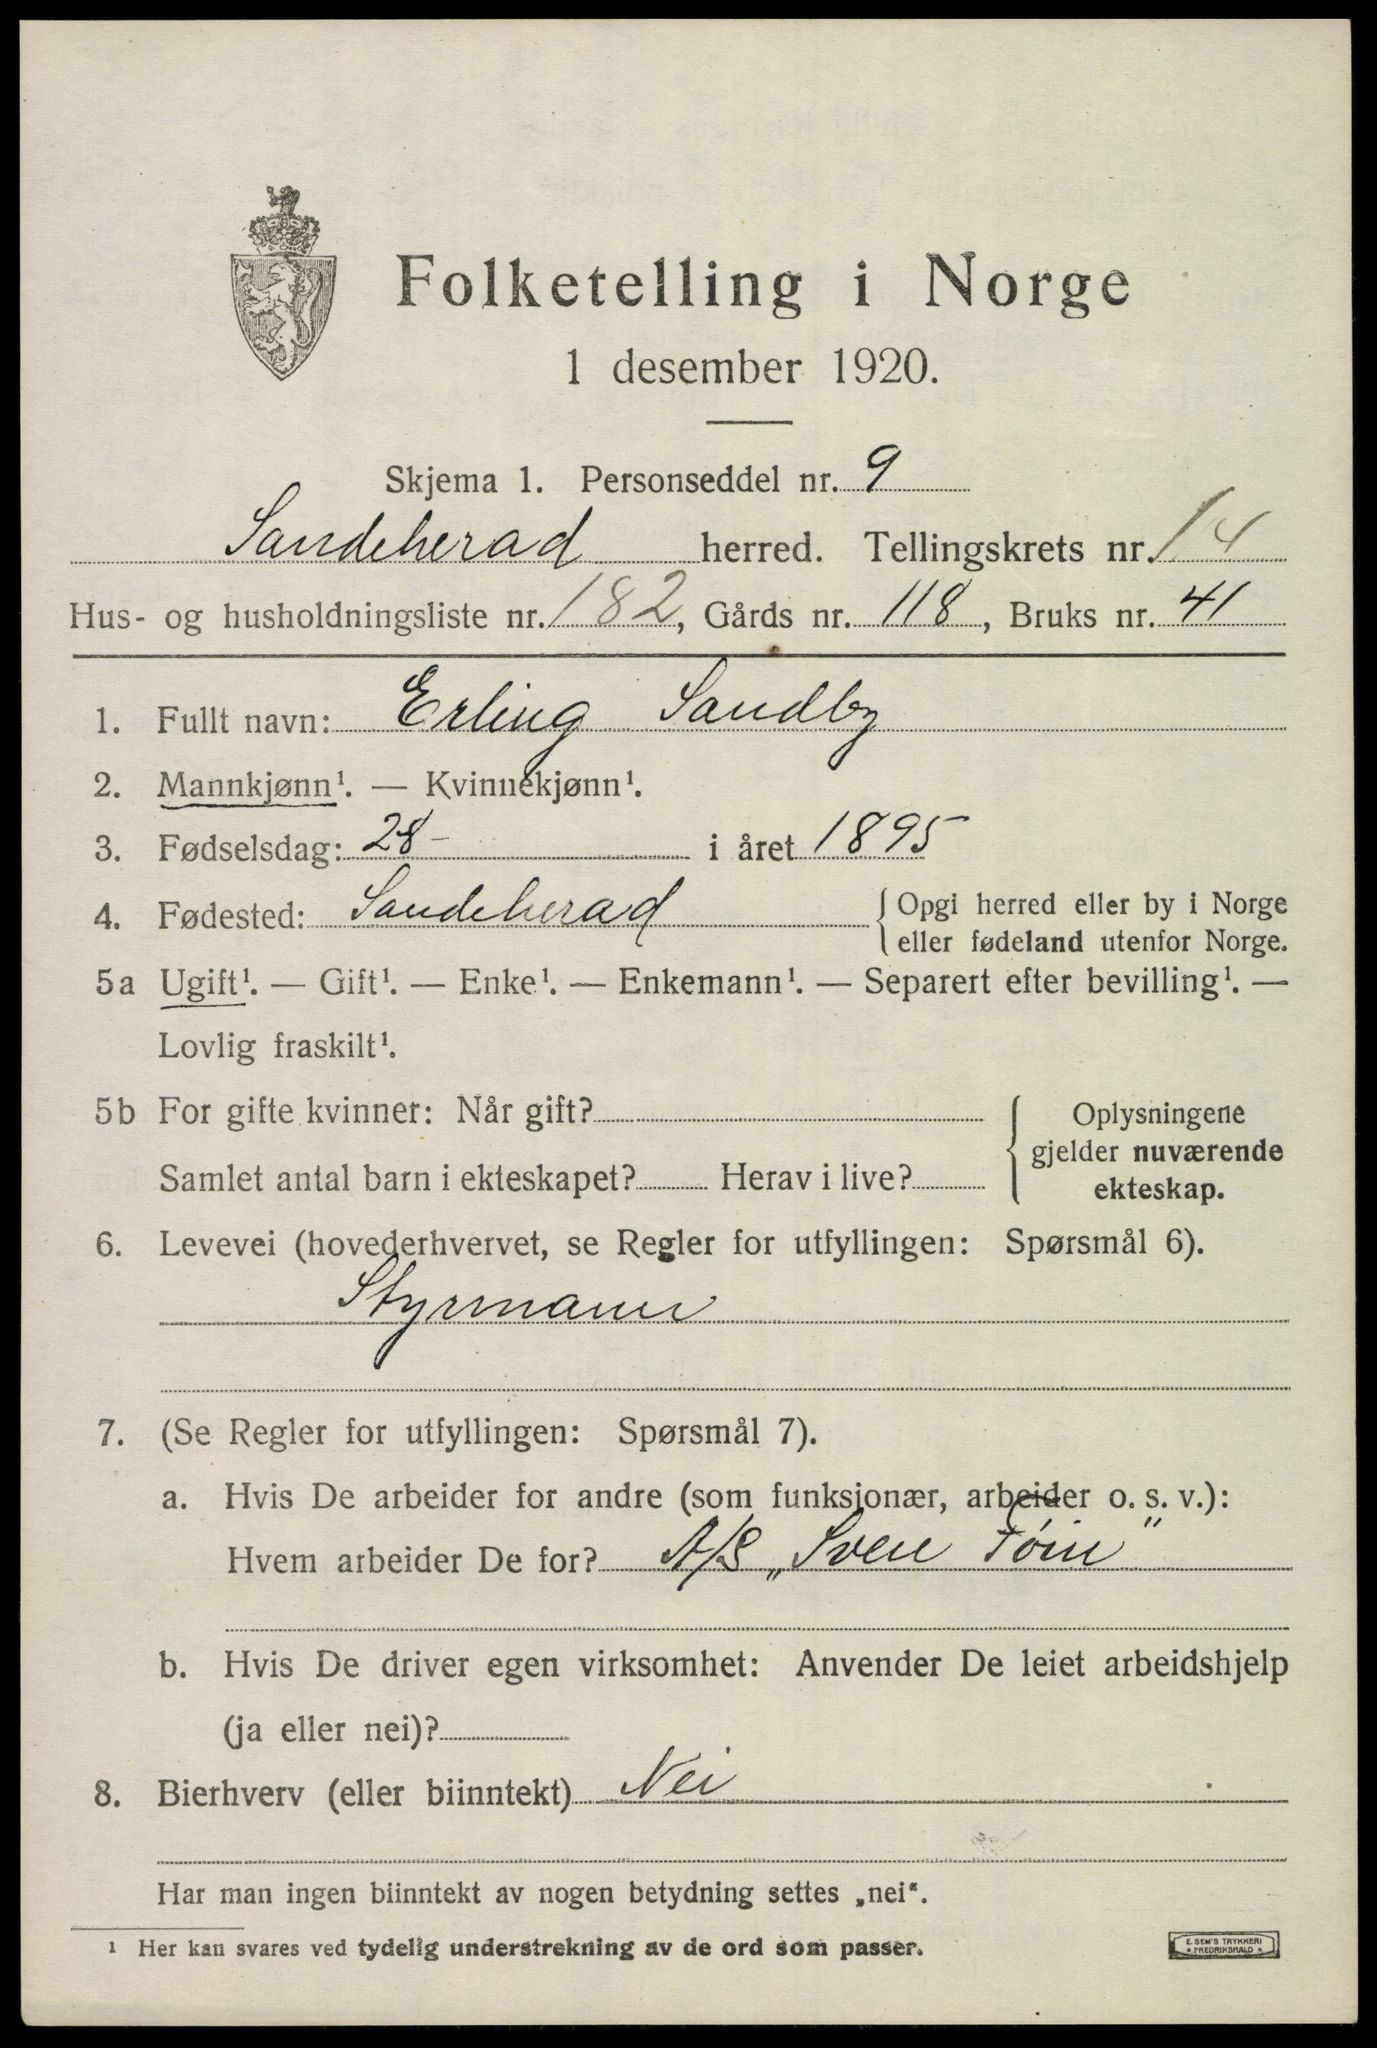 Folketelling i Norge
1 desember 1920.
Skjema 1. Personseddel nr. 9
Sandeherad herred. Tellingskrets nr. 14
Hus- og husholdningsliste nr. 182, Gårds nr. 118, Bruks nr. 41
1. Fullt navn: Erling Sandby
2. Mannkjønn¹. — Kvinnekjønn¹.
3. Fødselsdag: 28- i året 1895
4. Fødested: Sandeherad { Opgi herred eller by i Norge
eller fødeland utenfor Norge.
5a Ugift¹. — Gift¹. — Enke¹. — Enkemann¹. — Separert efter bevilling¹. —
Lovlig fraskilt¹.
5b For gifte kvinner: Når gift?
Samlet antal barn i ekteskapet? Herav i live?
{ Oplysningene
gjelder nuværende
ekteskap.
6. Levevei (hovederhvervet, se Regler for utfyllingen: Spørsmål 6).
Styrmann
7. (Se Regler for utfyllingen: Spørsmål 7).
a. Hvis De arbeider for andre (som funksjonær, arbeider o. s. v.):
Hvem arbeider De for? A/S „Sven Foin"
b. Hvis De driver egen virksomhet: Anvender De leiet arbeidshjelp
(ja eller nei)?
8. Bierhverv (eller biinntekt) Nei
Har man ingen biinntekt av nogen betydning settes „nei".
¹ Her kan svares ved tydelig understrekning av de ord som passer.
E. SEM'S TRYKKERI
FREDRIKSHALD